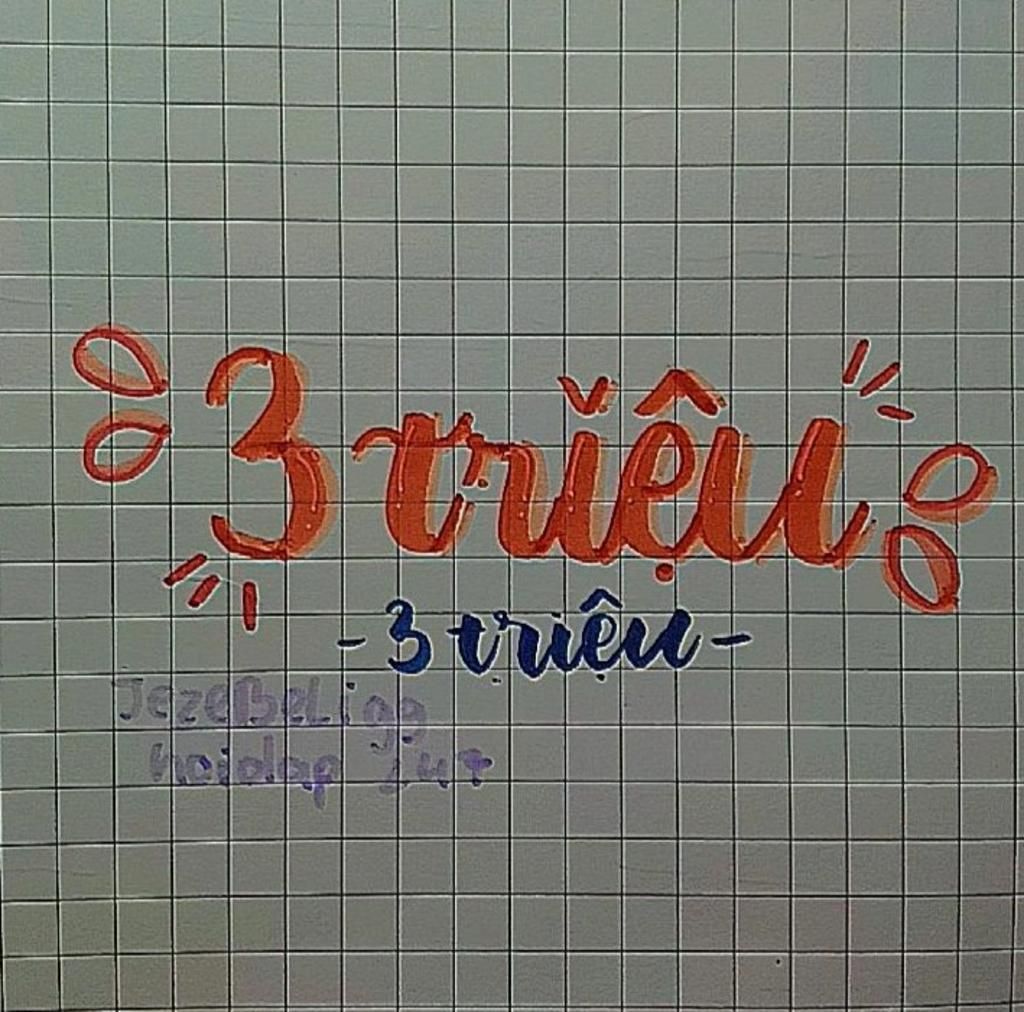 3 triệu
- 3 triệu -
JezeBeLigg
hoidap 247